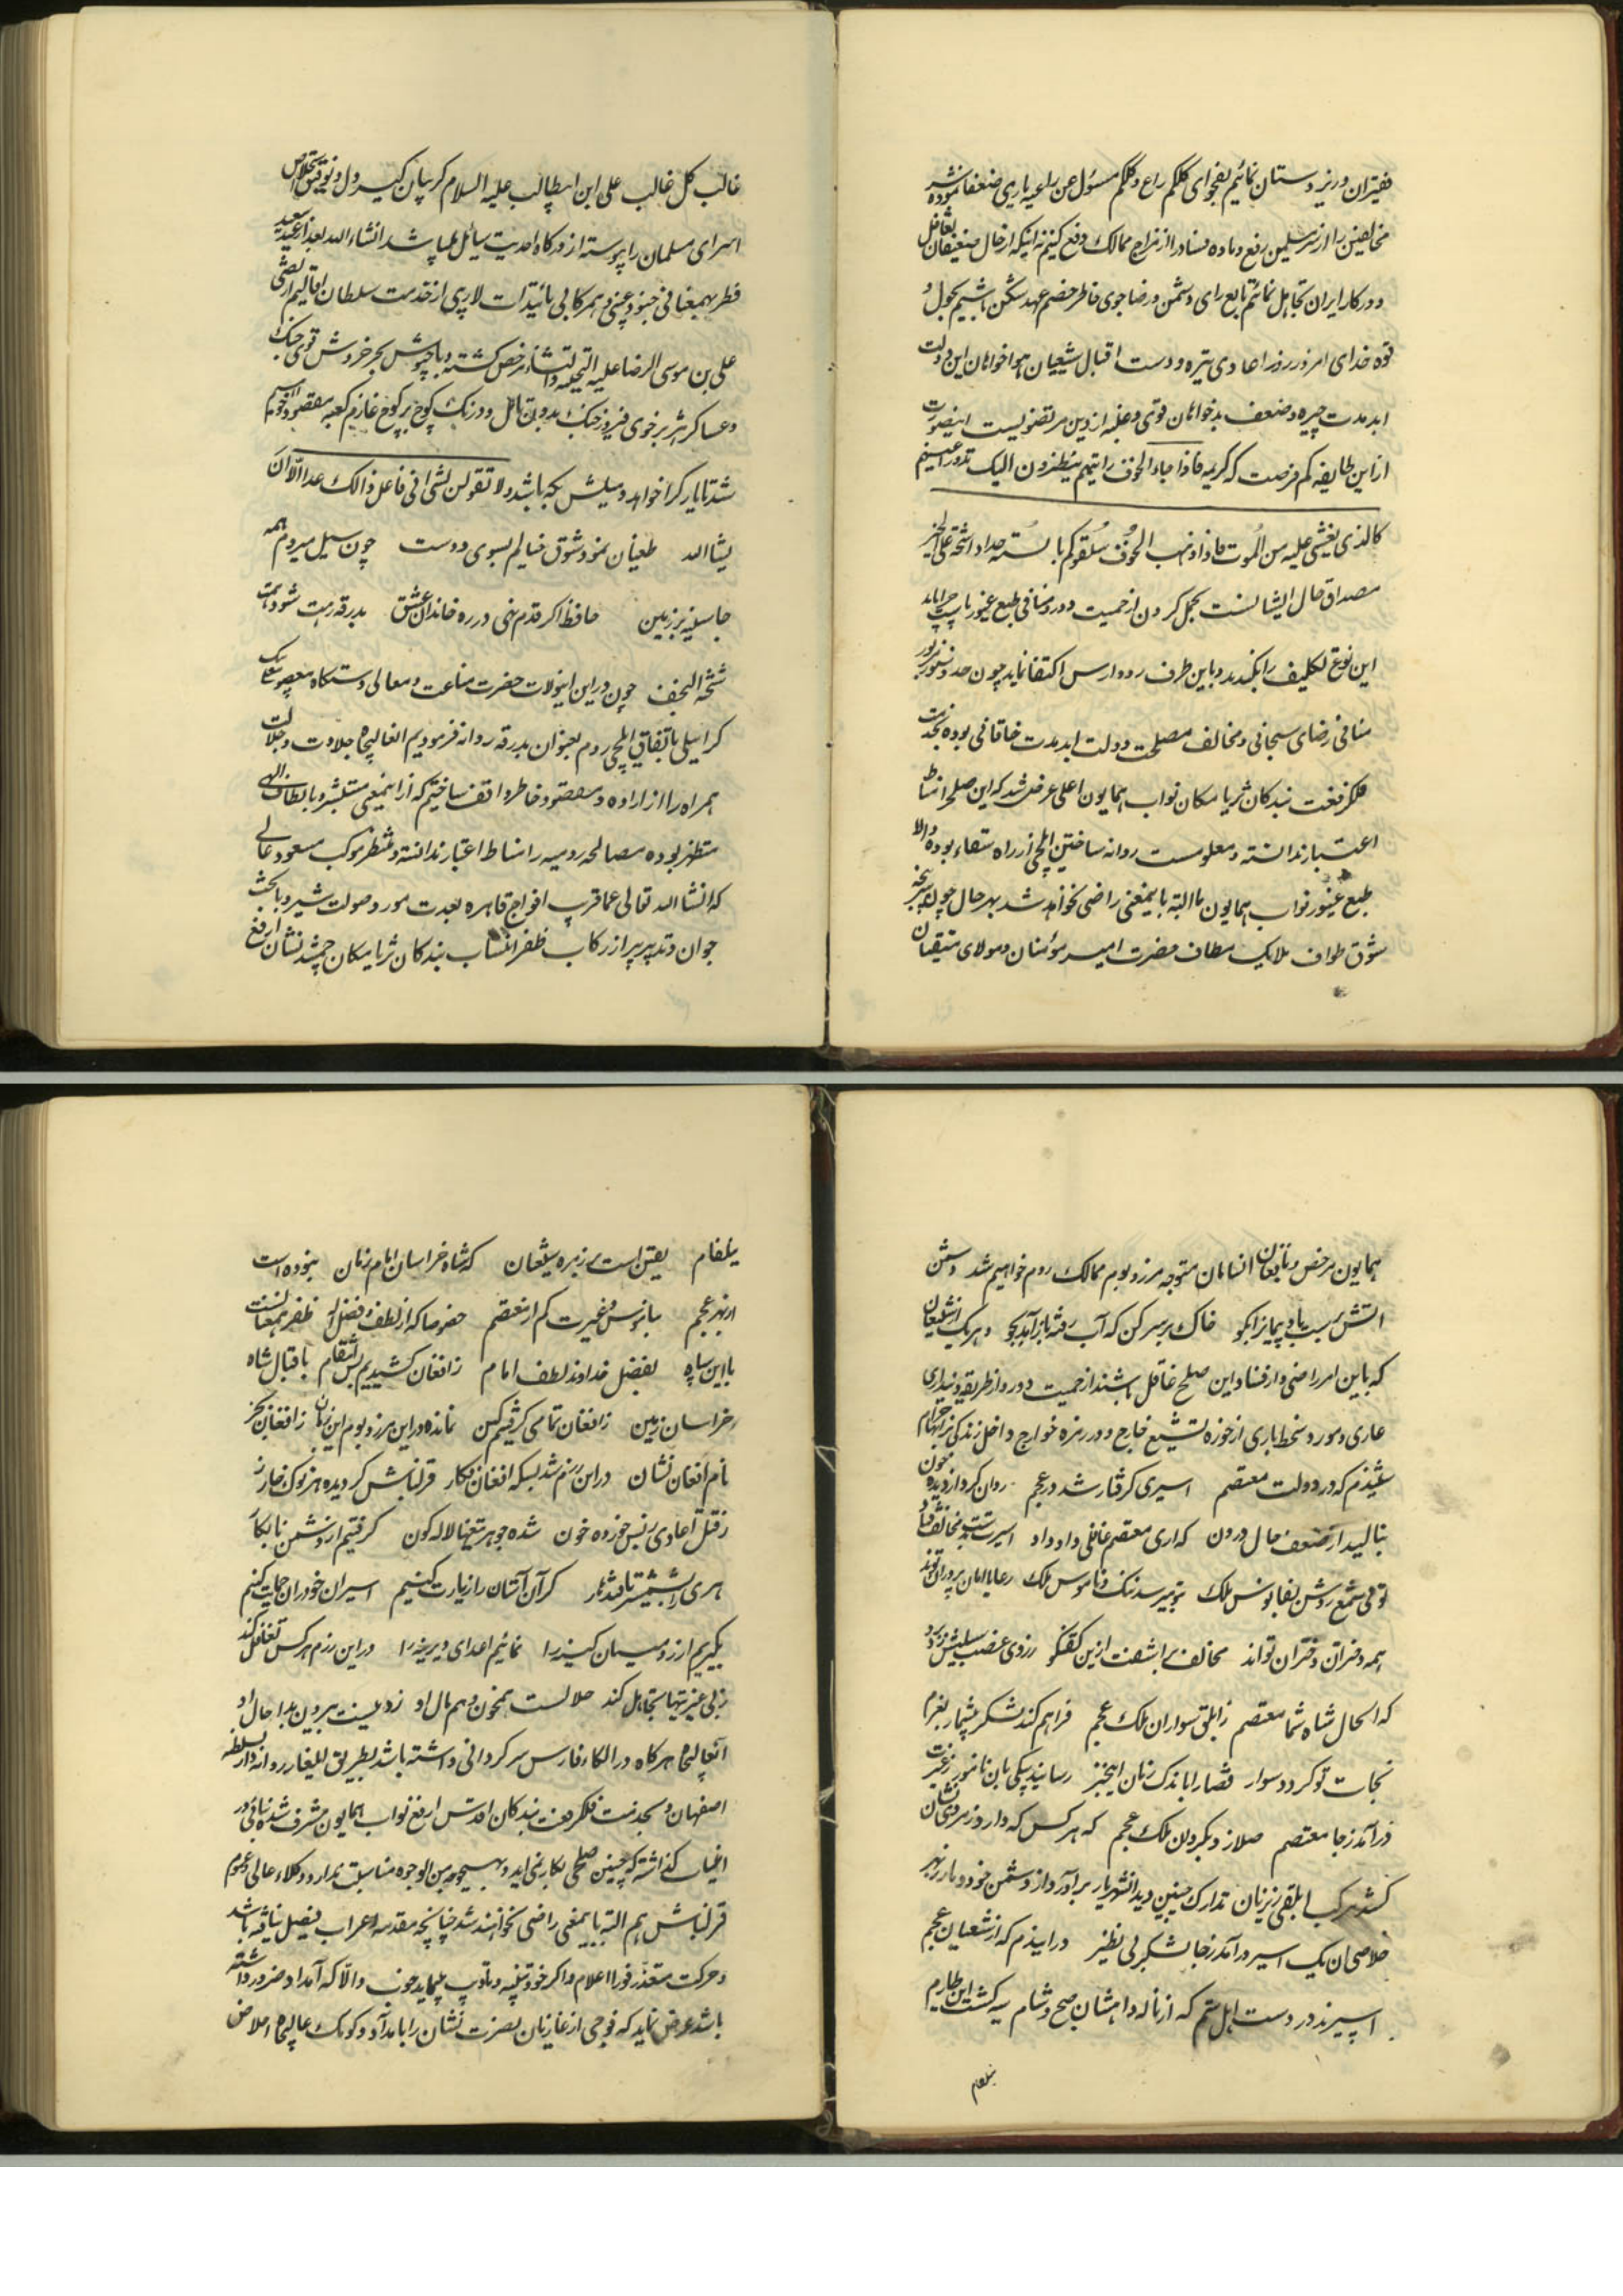 فقیران و زیردستان نمائیم بفحوای کلکم راع و کلکم مسئول عن رعیه یاری ضعفا نموده شر
مخالفین را از سر مسلمین رفع و ماده فساد را از مزاج ممالک دفع کنیم نه اینکه از حال ضعیفان تغافل
و در کار ایران تجاهل نمائیم تابع رای دشمن و رضاجوی خاطر خصم عهد شکن باشیم بحول و
قوه خدای امروز روز اعادی تیره و دست اقبال شیعیان هواخواهان این دولت
ابد مدت چیره و ضعف بدخواهان قوی و غلبه از دین مرتضویست اینصورت
از این طایفه کم فرصت که کریمه فاذا جاء الخوف رایتهم ینظرون الیک تدور اعینهم
کالذی یغشی علیه من الموت فاذا ذهب الخوف سلقوکم بالسنه حداد اشحة علی الخیر
مصداق حال ایشانست تحمل کردن از حمیت دور و منافی طبع غیور است چرا باید
این نوع تکلیف را بکنند و باین طرف رود ارس اکتفا نماید چون حد و سنور مزبور
منافی رضای سبحانی و مخالف مصلحت دولت ابد مدت خاقانی بوده بخدمت
فلکرفعت بندکان ثریا مکان نواب همایون اعلی عرض شد که این صلح را مناط
اعتبار ندانسته و معلومست روانه ساختن ایلچی از راه استعفاء بوده والا
طبع غیور نواب همایون ما البته باینمعنی راضی نخواهد شد بهر حال چون پیوسته
شوق طواف ملایک مطاف حضرت امیر مؤمنان و مولای متقیان
غالب کل غالب علی ابن ابیطالب علیه السلام کریبان کیر دل و توفیق استخلاص
اسرای مسلمان را پیوسته از درکاه احدیت سائل میباشد انشاء الله بعد از عید سعید
فطر بهمعنانی جنود غیبی و همرکابی تائیدات لاریبی از خدمت سلطان اقالیم ارتضی
علی بن موسی الرضا علیه التحیه و الثناء مرخص کشته و با جیوش بحر خروش قوی چنک
و عساکر هژبر خوی فیروز جنک بدون تامل و درنک کوچ بر کوچ عازم کعبه مقصود خواهیم
شد تا یار کرا خواهد و میلش بکه باشد ولا تقولن لشیء انی فاعل ذالک غدا الا ان
یشاءالله طغیان نمود شوق خیالم بسوی دوست چون سیل میروم همه
جا سینه بر زمین حافظ اکر قدم نهی در ره خاندان عشق بدرقه رهت شود همت
شحنه النجف چون در این ایولات حضرت مناعت و معالی دستکاه معصوم علی بیک
کرایلی باتفاق ایلچی روم بعنوان بدرقه روانه فرمودیم انعالیجاه جلادت و جلالت
همراه را از اراده و مقصود خاطر واقف ساختیم که از اینمعنی مستبشر و بالطاف الهی
مستظهر بوده مصالحه رومیه را مناط اعتبار ندانسته و منتظر موکب مسعود عالی
که انشاء الله تعالی عماقریب افواج قاهره بعدت مور و صولت شیر و با بخت
جوان و تدبیر پیر از رکاب ظفر انتساب بندکان ثریا مکان جمشید نشان ارفع
همایون مرخص و بتعاقب انسامان متوجه مرز و بوم ممالک روم خواهیم شد دشمن
اتش پرست بادپیما را بکو خاک بر سر کن که آب رفته باز آمد بجو و هر یک از شیعیان
که باین امر راضی و از فساد این صلح غافل باشند از حمیت دور و از طریق دینداری
عاری و مورد سخط باری از حوزه تشیع خارج و در زمره خوارج داخل زندکی بر انها حرام
شنیدم که در دولت معتصم اسیری کرفتار شد در عجم روان کرد از دیده خون
بنالید از ضعف حال درون که ای معتصم غافلی داد داد اسیرت بدست مخالف فتاد
توئی شمع روشن بفانوس ملک بتو میرسد ننک و ناموس ملک رعایا امان پرور ان تواند
همه دختران دختران تواند مخالف بر اشفت از این کفتکو ز روی غضب سیلیش زد برو
که الحال شاه شما معتصم ز ابلق سواران ملک عجم فراهم کند لشکر بیشمار بعزم
نجات تو کردد سوار قضا را باندک زمان اینخبر رسانید پیکی بان نامور ز غیرت
درآمد ز جا معتصم صلا زد بکردان ملک عجم که هر کس که دارد ز مردی نشان
کشد مرکب ابلقی زیر ران تدارک چنین دید انشهریار برآورد از دشمن خود دمار ز بهر
خلاصی ان یک اسیر درآمد ز جا لشکر بی نظیر در ایندم که از شیعیان عجم
اسیرند در دست اهل ستم که از ناله و آهشان صبح و شام سیه کشت این طارم
نیلفام
نیلفام یقین است بر زمره شیعیان که شاه خراسان امام زمان نبوده است
از بهر عجم بناموس و غیرت کم از معتصم خصوصا که از لطف و فضل اله ظفر همعنانست
با این سپاه بفضل خداوند لطف امام ز افغان کشیدیم بس انتقام باقبال شاه
خراسان زمین ز افغان تمامی کرفتیم کین نمانده در این مرز و بوم این زمان ز افغان بجز
نام افغان نشان در این رزم شد بسکه افغان فکار قزلباش کردیده هر نوک خار
ز قتل اعادی ز بس خورده خون شده جوهر تیغها لاله کون کرفتیم از دشمن نابکار
هری را بشمشیر تا قندهار کز آن آستان را زیارت کنیم اسیران خود را حمایت کنیم
بکیریم از رومیان کینه را نمائیم اعدای دیرینه را در این رزم هر کس تغافل کند
ز بی غیرتیها تجاهل کند حلالست هم خون و هم مال او ز دینست بیرون بدا حال او
آنعالیجاه هرکاه در الکاء فارس سرکردانی داشته باشد بطریق ایلغار روانه دار السلطنه
اصفهان و بخدمت فلکرفعت بندکان اقدس ارفع نواب همایون مشرف شده بنای در
اغیاب کذاشته که چنین صلحی بکار نمی اید و بهیچوجه من الوجوه مناسبت ندارد و وکلاء عالی و عموم
قزلباش هم البته باینمعنی راضی نخواهند شد چنانچه مقدمه اعراب فیصل نیافته باشد
و حرکت متعذر فورا اعلام و اکر خود تنبیه و تادیب نماید خوب و الا که آمداد ضرور داشته
باشد عرض نماید که فوجی از غازیان نصرت نشان را بامداد و کومک عالیجاه اخلاص